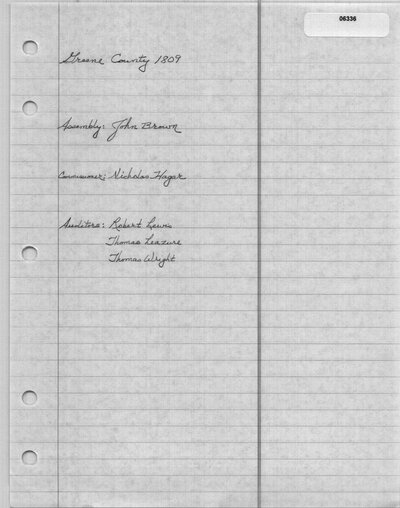 06336
Greene County 1809
Assembly: John Brown
Commissioner: Nicholas Hager
Auditors: Robert Lewis
Thomas Leazure
Thomas Wright